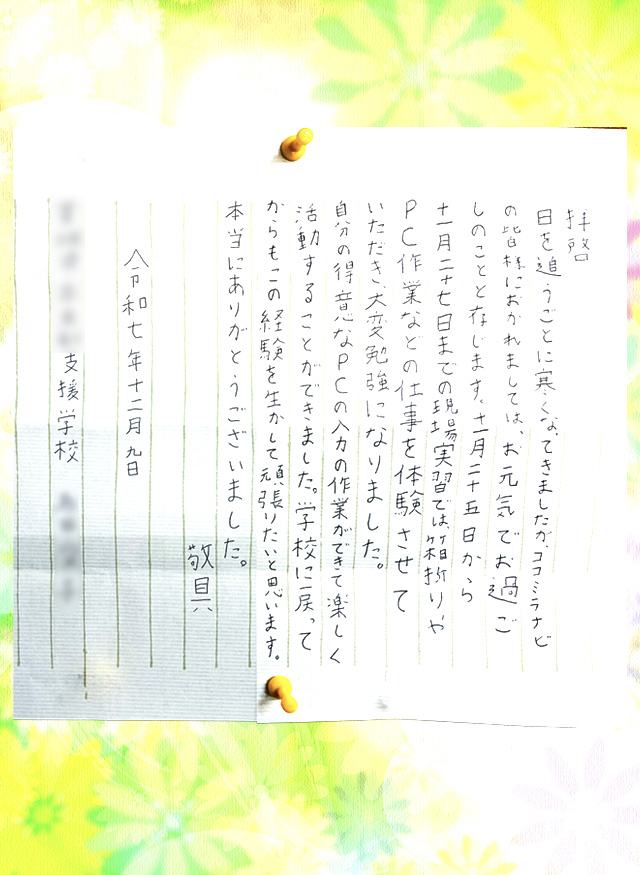 拝啓
日を追うごとに寒くなってきましたが、ココミラナビ
の皆様におかれましては、お元気でお過ご
しのことと存じます。十一月二十五日から
十一月二十七日までの現場実習では、箱折りや
PC作業などの仕事を体験させて
いただき、大変勉強になりました。
自分の得意なPCの入力の作業ができて楽しく
活動することができました。学校に戻って
からもこの経験を生かして頑張りたいと思います。
本当にありがとうございました。
敬具
令和七年十二月九日
支援学校